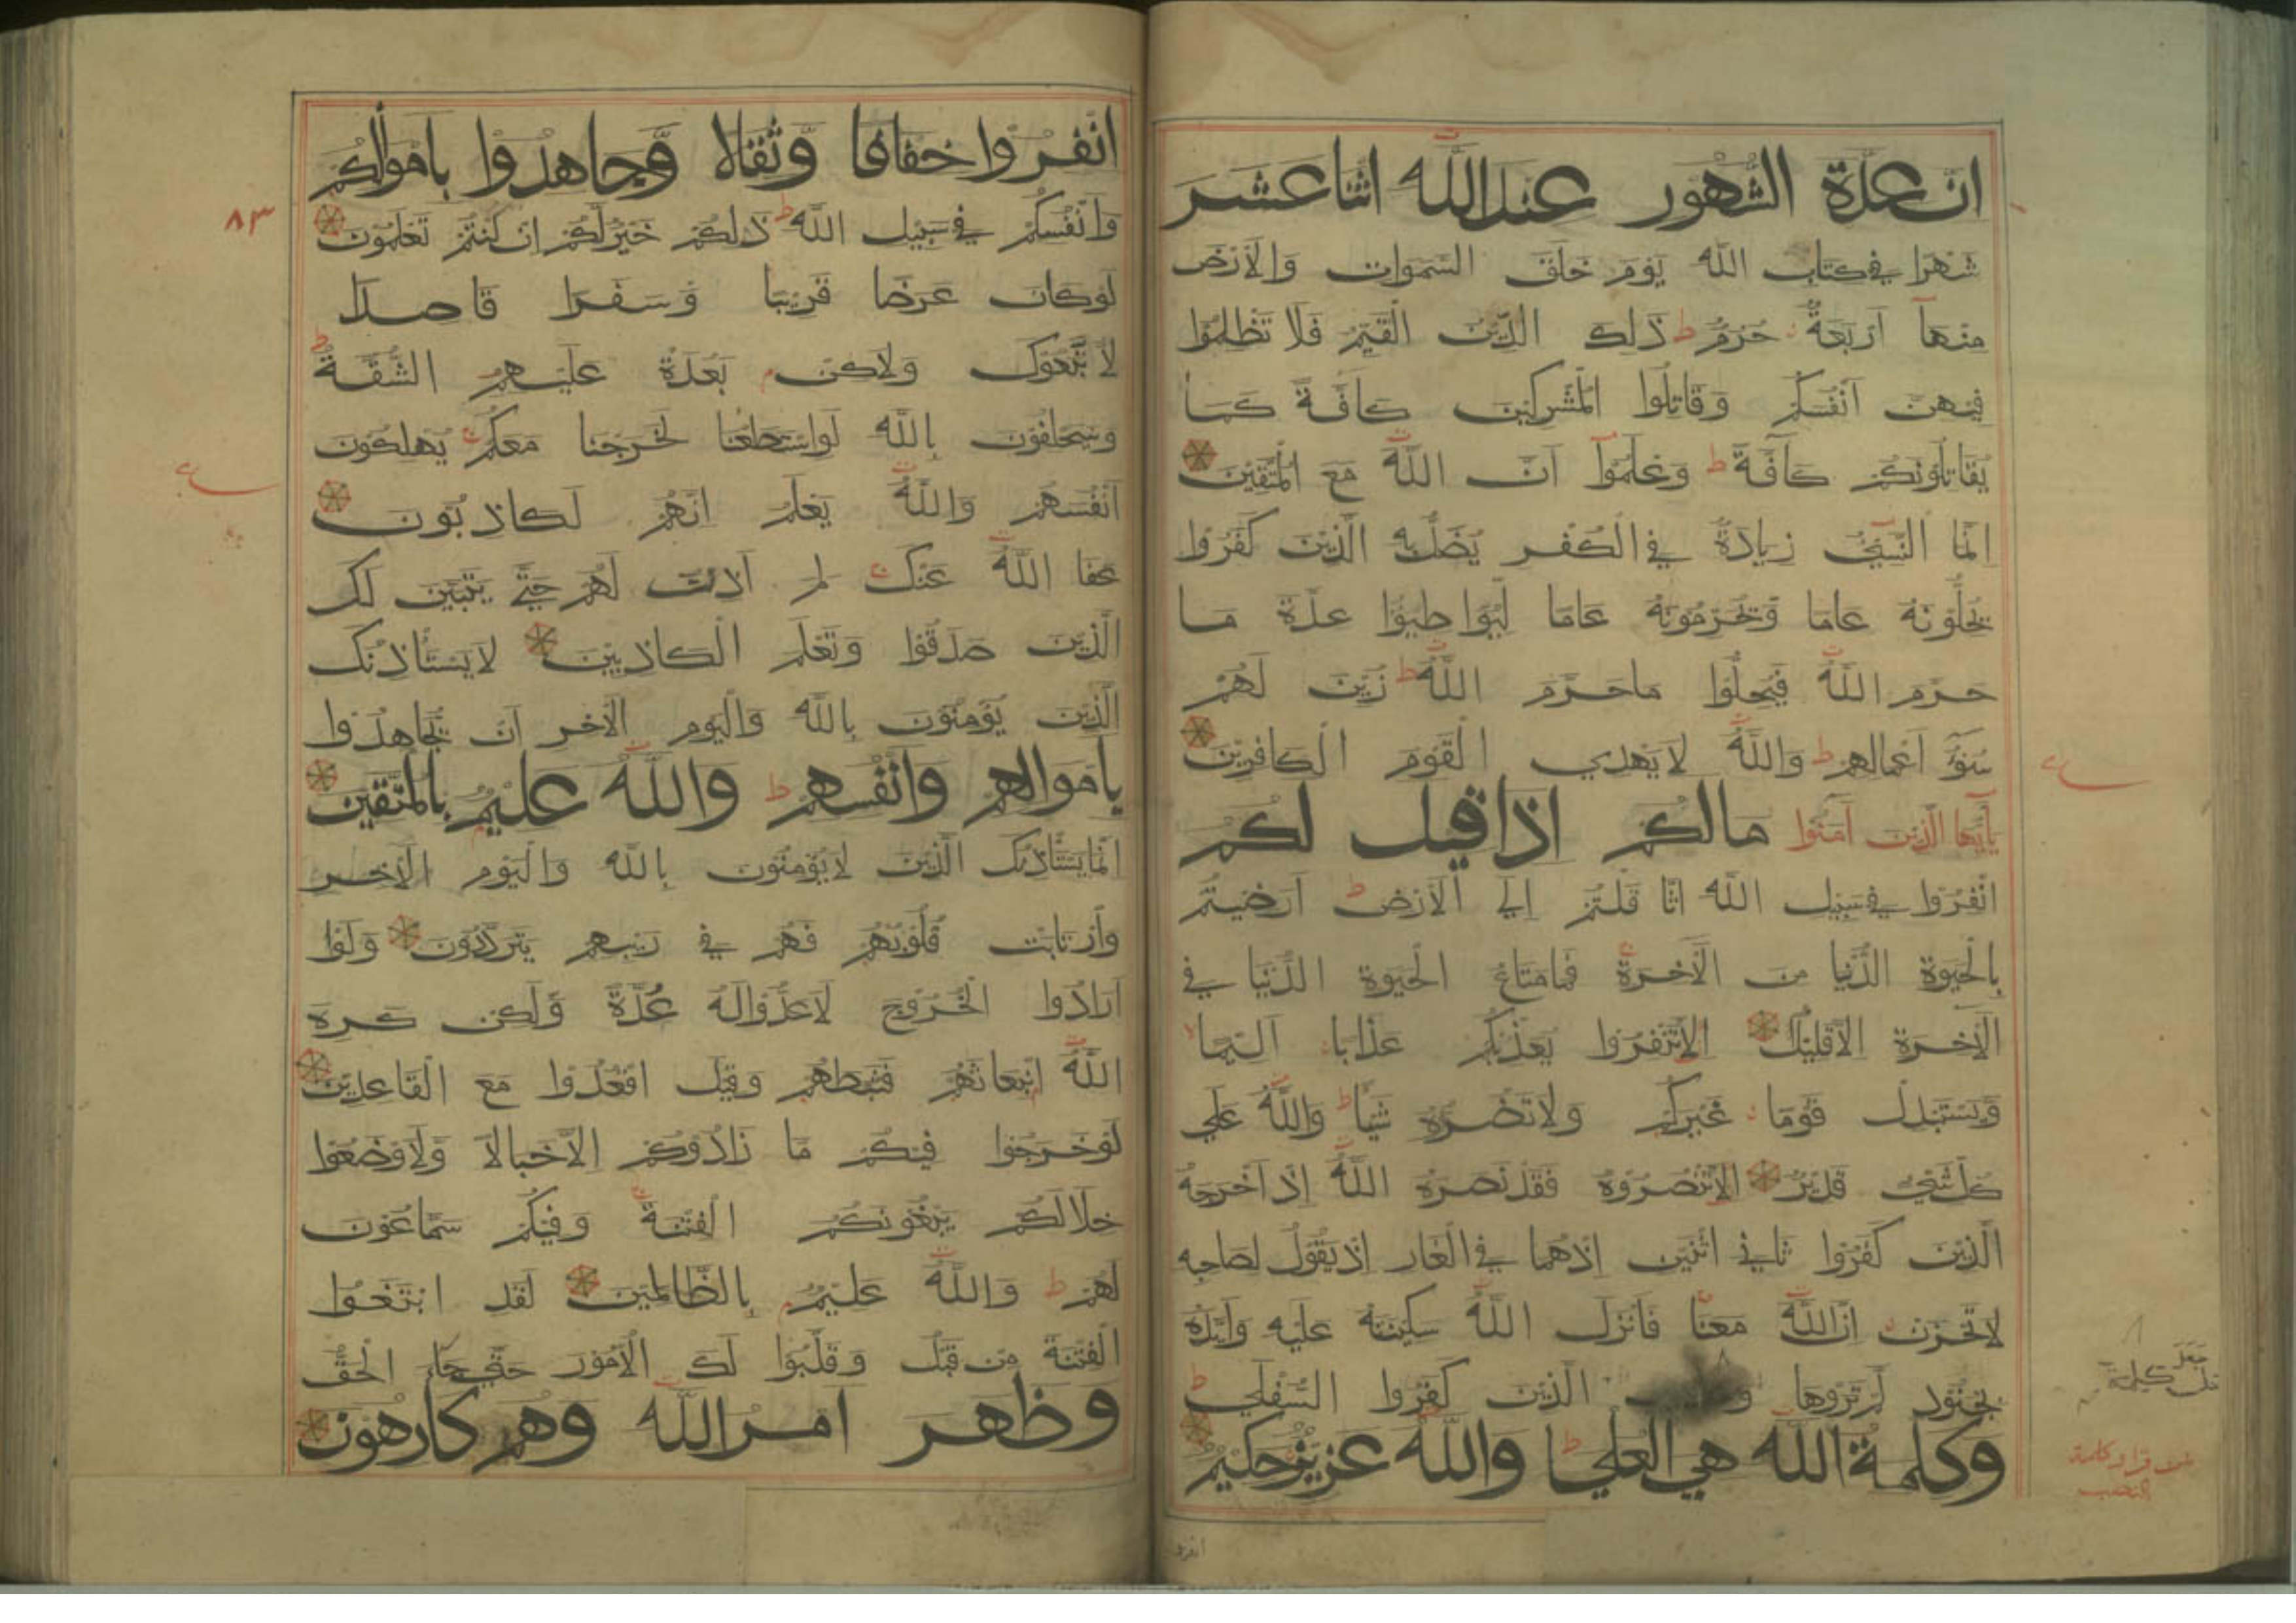 ان عدة الشهور عند الله اثنا عشر
شهرا في كتاب الله يوم خلق السموات والارض
منها اربعة حرم ط ذلك الدين القيم فلا تظلموا
فيهن انفسكم وقاتلوا المشركين كافة كما
يقاتلونكم كافة ط وعلموا ان الله مع المتقين
انما النسيء زيادة في الكفر يضل به الذين كفروا
يحلونه عاما ويحرمونه عاما ليواطيوا عدة ما
حرم الله فيحلوا ما حرم الله ط زين لهم
سوء اعمالهم ط والله لا يهدي القوم الكافرين
يايها الذين امنوا مالكم اذا قيل لكم
انفروا في سبيل الله اثا قلتم الي الارض ط ارضيتم
بالحيوة الدنيا من الاخرة ج فما متاع الحيوة الدنيا في
الاخرة الا قليل الا تنفروا يعذبكم عذابا اليما
ويستبدل قوما غيركم ولا تضروه شيا ط والله علي
كل شيء قدير الا تنصروه فقد نصره الله اذ اخرجه
الذين كفروا ثاني اثنين اذ هما في الغار اذ يقول لصاحبه
لا تحزن ان الله معنا ج فانزل الله سكينته عليه وايده
بجنود لم تروها الذين كفروا السفلي ط
وكلمة الله هي العليا ط والله عزيز حكيم
جعل
كلمة
انفرو
انفروا خفافا وثقالا وجاهدوا باموالكم
وانفسكم في سبيل الله ط ذلكم خير لكم ان كنتم تعلمون
٨٣
لو كان عرضا قريبا وسفرا قاصدا
لاتبعوك ولاكن بعدة عليهم الشقة ط
وسيحلفون بالله لو استطعنا لخرجنا معكم ج يهلكون
انفسهم والله يعلم انهم لكاذبون
عفا الله عنك ج لم اذنت لهم حتي يتبين لك
الذين صدقوا وتعلم الكاذبين لا يستأذنك
الذين يؤمنون بالله واليوم الاخر ان يجاهدوا
باموالهم وانفسهم ط والله عليم بالمتقين
انما يستأذنك الذين لا يؤمنون بالله واليوم الاخر
وارتابت قلوبهم فهم في ريبهم يترددون ولوا
ارادوا الخروج لاعدوا له عدة ولكن كره
الله انبعاثهم فثبطهم وقيل اقعدوا مع القاعدين
لو خرجوا فيكم ما زادوكم الا خبالا ولاوضعوا
خلالكم يبغونكم الفتنة ج وفيكم سماعون
لهم ط والله عليم بالظالمين لقد ابتغوا
الفتنة من قبل وقلبوا لك الامور حتي جاء الحق
وظهر امر الله وهم كارهون